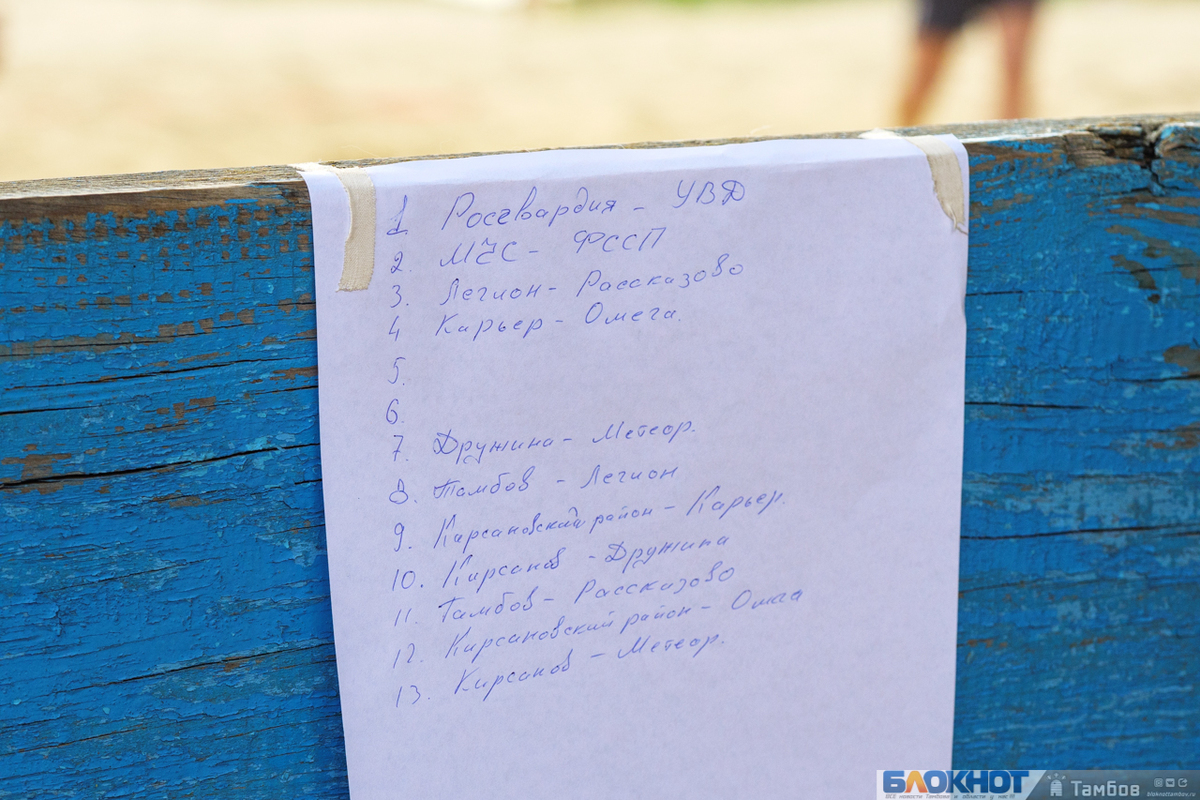 1. Росгвардия - УВД
2. МЧС - ФССП
3. Легион - Рассказово
4 Карьер - Омега.
5.
6.
7. Дружина - Метеор.
8. Тамбов - Легион
9. Кирсановский район - Карьер.
10. Кирсанов - Дружина
11. Тамбов - Рассказово
12. Кирсановский район - Омега
13. Кирсанов - Метеор.
БЛОКНОТ Тамбов